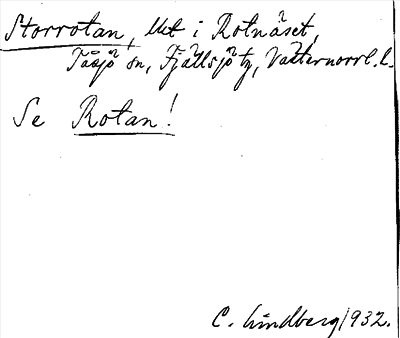 Storrotan, Udt i Rotnäset,
Tåsjö sn, Fjällsjö tg, Västernorrl. l.
Se Rotan!
C. Lindberg 1932.